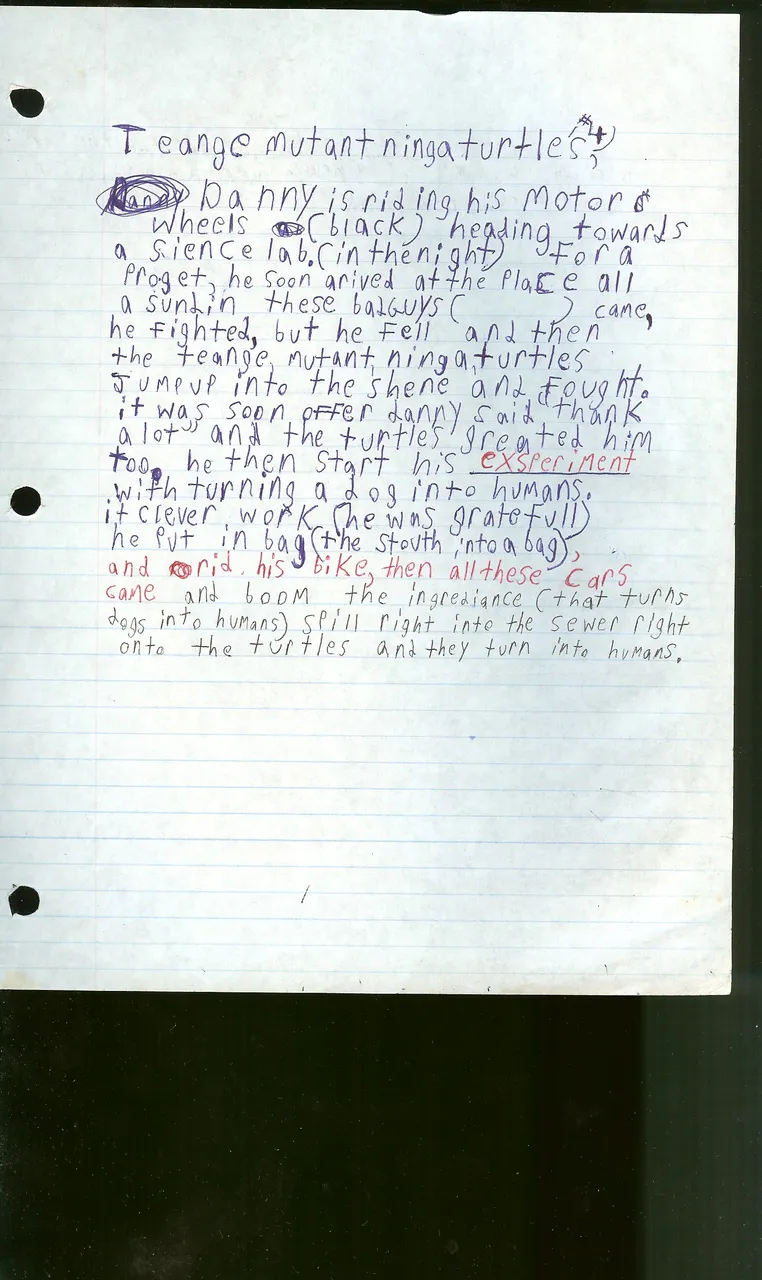 Teange mutant ninga turtles, #4
Danny Danny is riding his motor
wheels (black) heading towards
a sience lab. (in the night) for a
Proget, he soon arived at the place all
a sundin these badguys ( ) came,
he fighted, but he fell and then
the teange, mutant, ninga, turtles
Jump up into the shene and fought.
it was soon offer danny said "thank
a lot" and the turtles greated him
too. he then start his exsperiment
with turning a dog into humans.
it clever work (he was gratefull)
he put in bag (the stouth into a bag),
and rid. his bike, then all these cars
came and boom the ingrediance (that turns
dogs into humans) spill right into the sewer right
onto the turtles and they turn into humans.